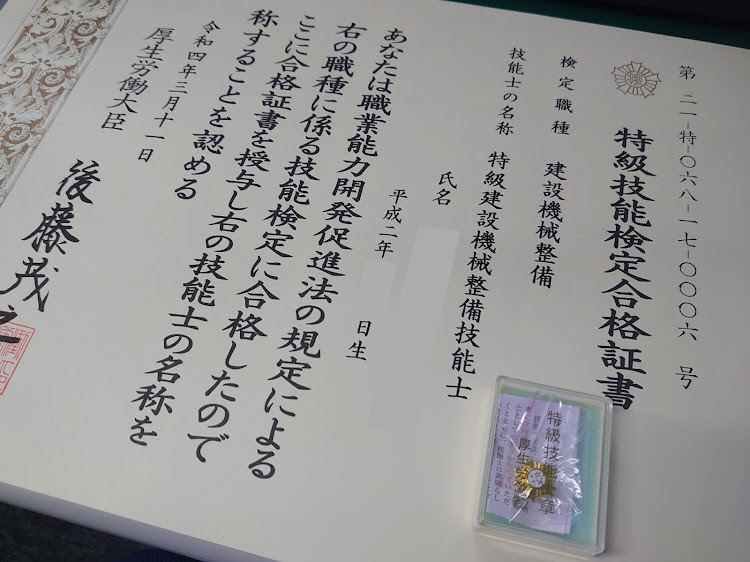 第 二一-特-〇六八-一七-〇〇〇六 号
特級技能検定合格証書
検定職種 建設機械整備
技能士の名称 特級建設機械整備技能士
氏名
平成二年 日生
あなたは職業能力開発促進法の規定による
右の職種に係る技能検定に合格したので
ここに合格証書を授与し右の技能士の名称を
称することを認める
令和四年三月十一日
厚生労働大臣
後藤茂之
特級技能士章
厚生労働省